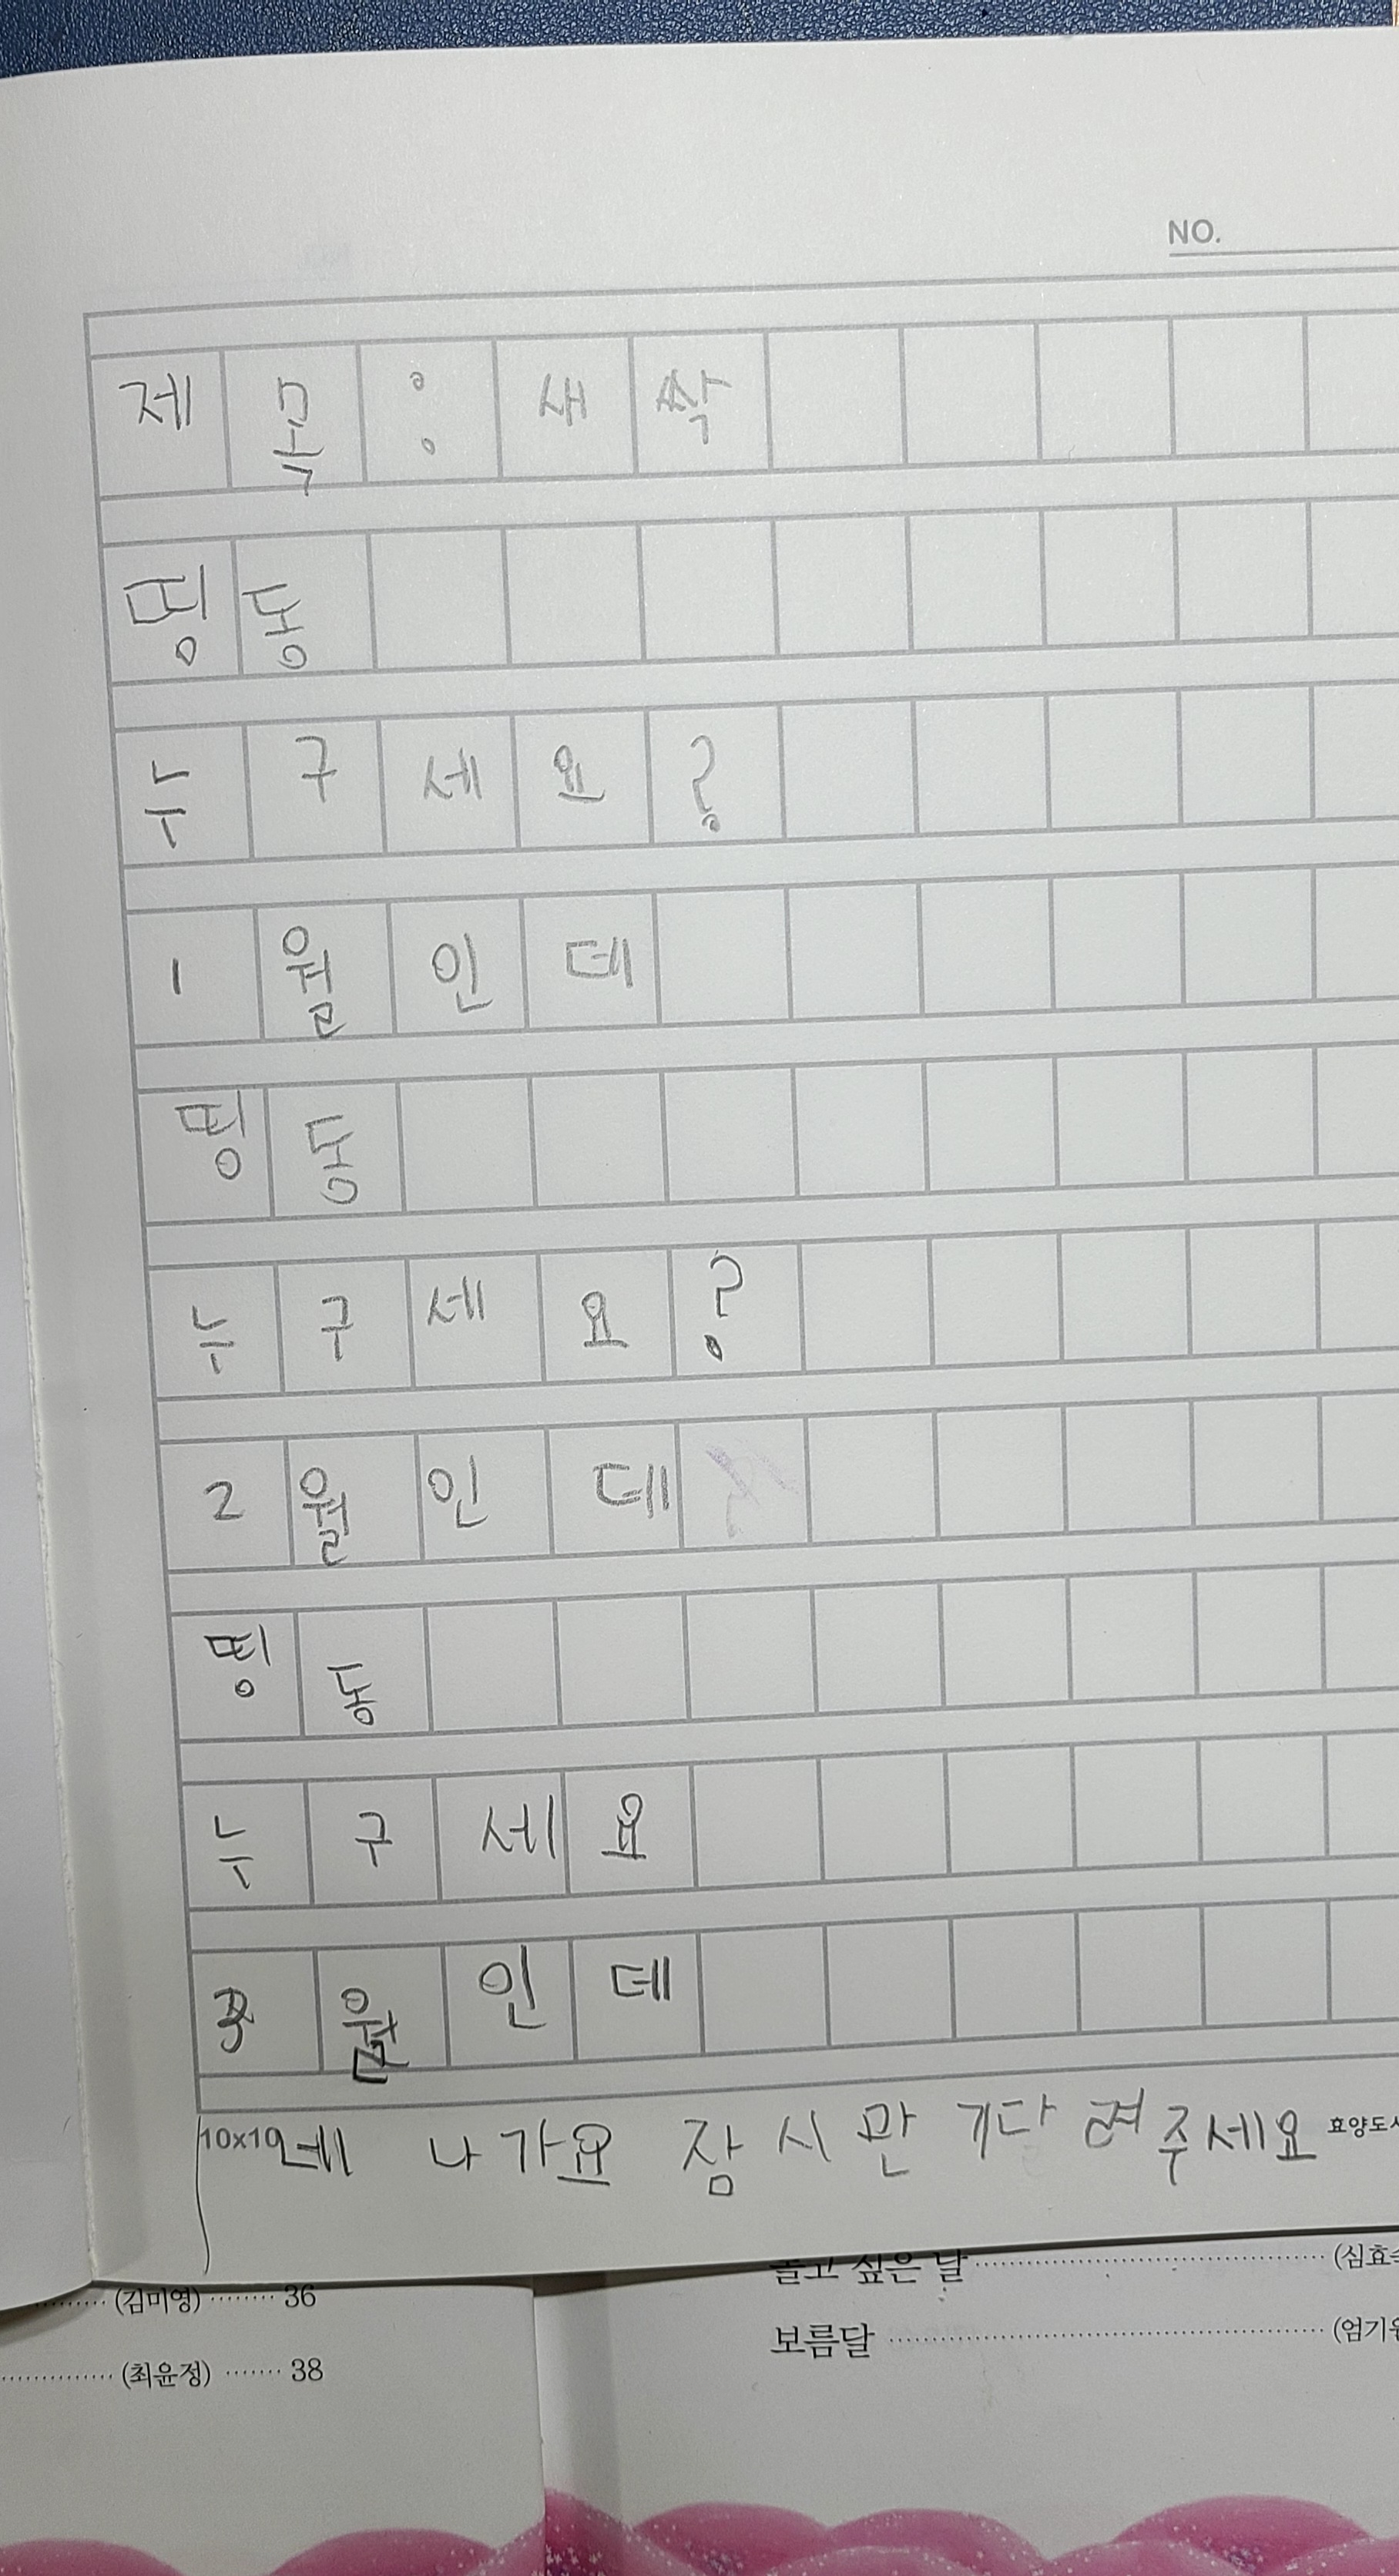 NO.
제목:새싹
띵동
누구세요?
1월인데
띵동
누구세요?
2월인데
띵동
누구세요
3월인데
10x10
네 나가요 잠시만 기다려주세요
효양도서
놀고 싶은 달 (심효숙
보름달 (엄기원
(김미영) 36
(최윤정) 38